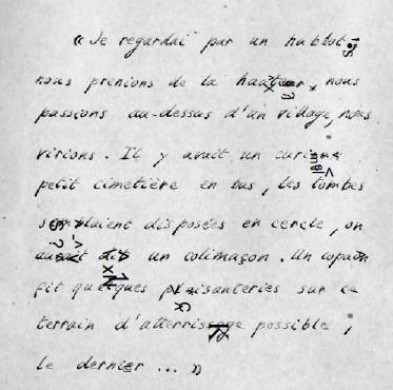 « Je regardai par un hublot :
nous prenions de la hauteur, nous
passions au-dessus d'un village, nous
virions. Il y avait un curieux
petit cimetière en bas, les tombes
semblaient disposées en cercle, on
aurait dit un colimaçon. Un copain
fit quelques plaisanteries sur ce
terrain d'atterrissage possible,
le dernier ... »